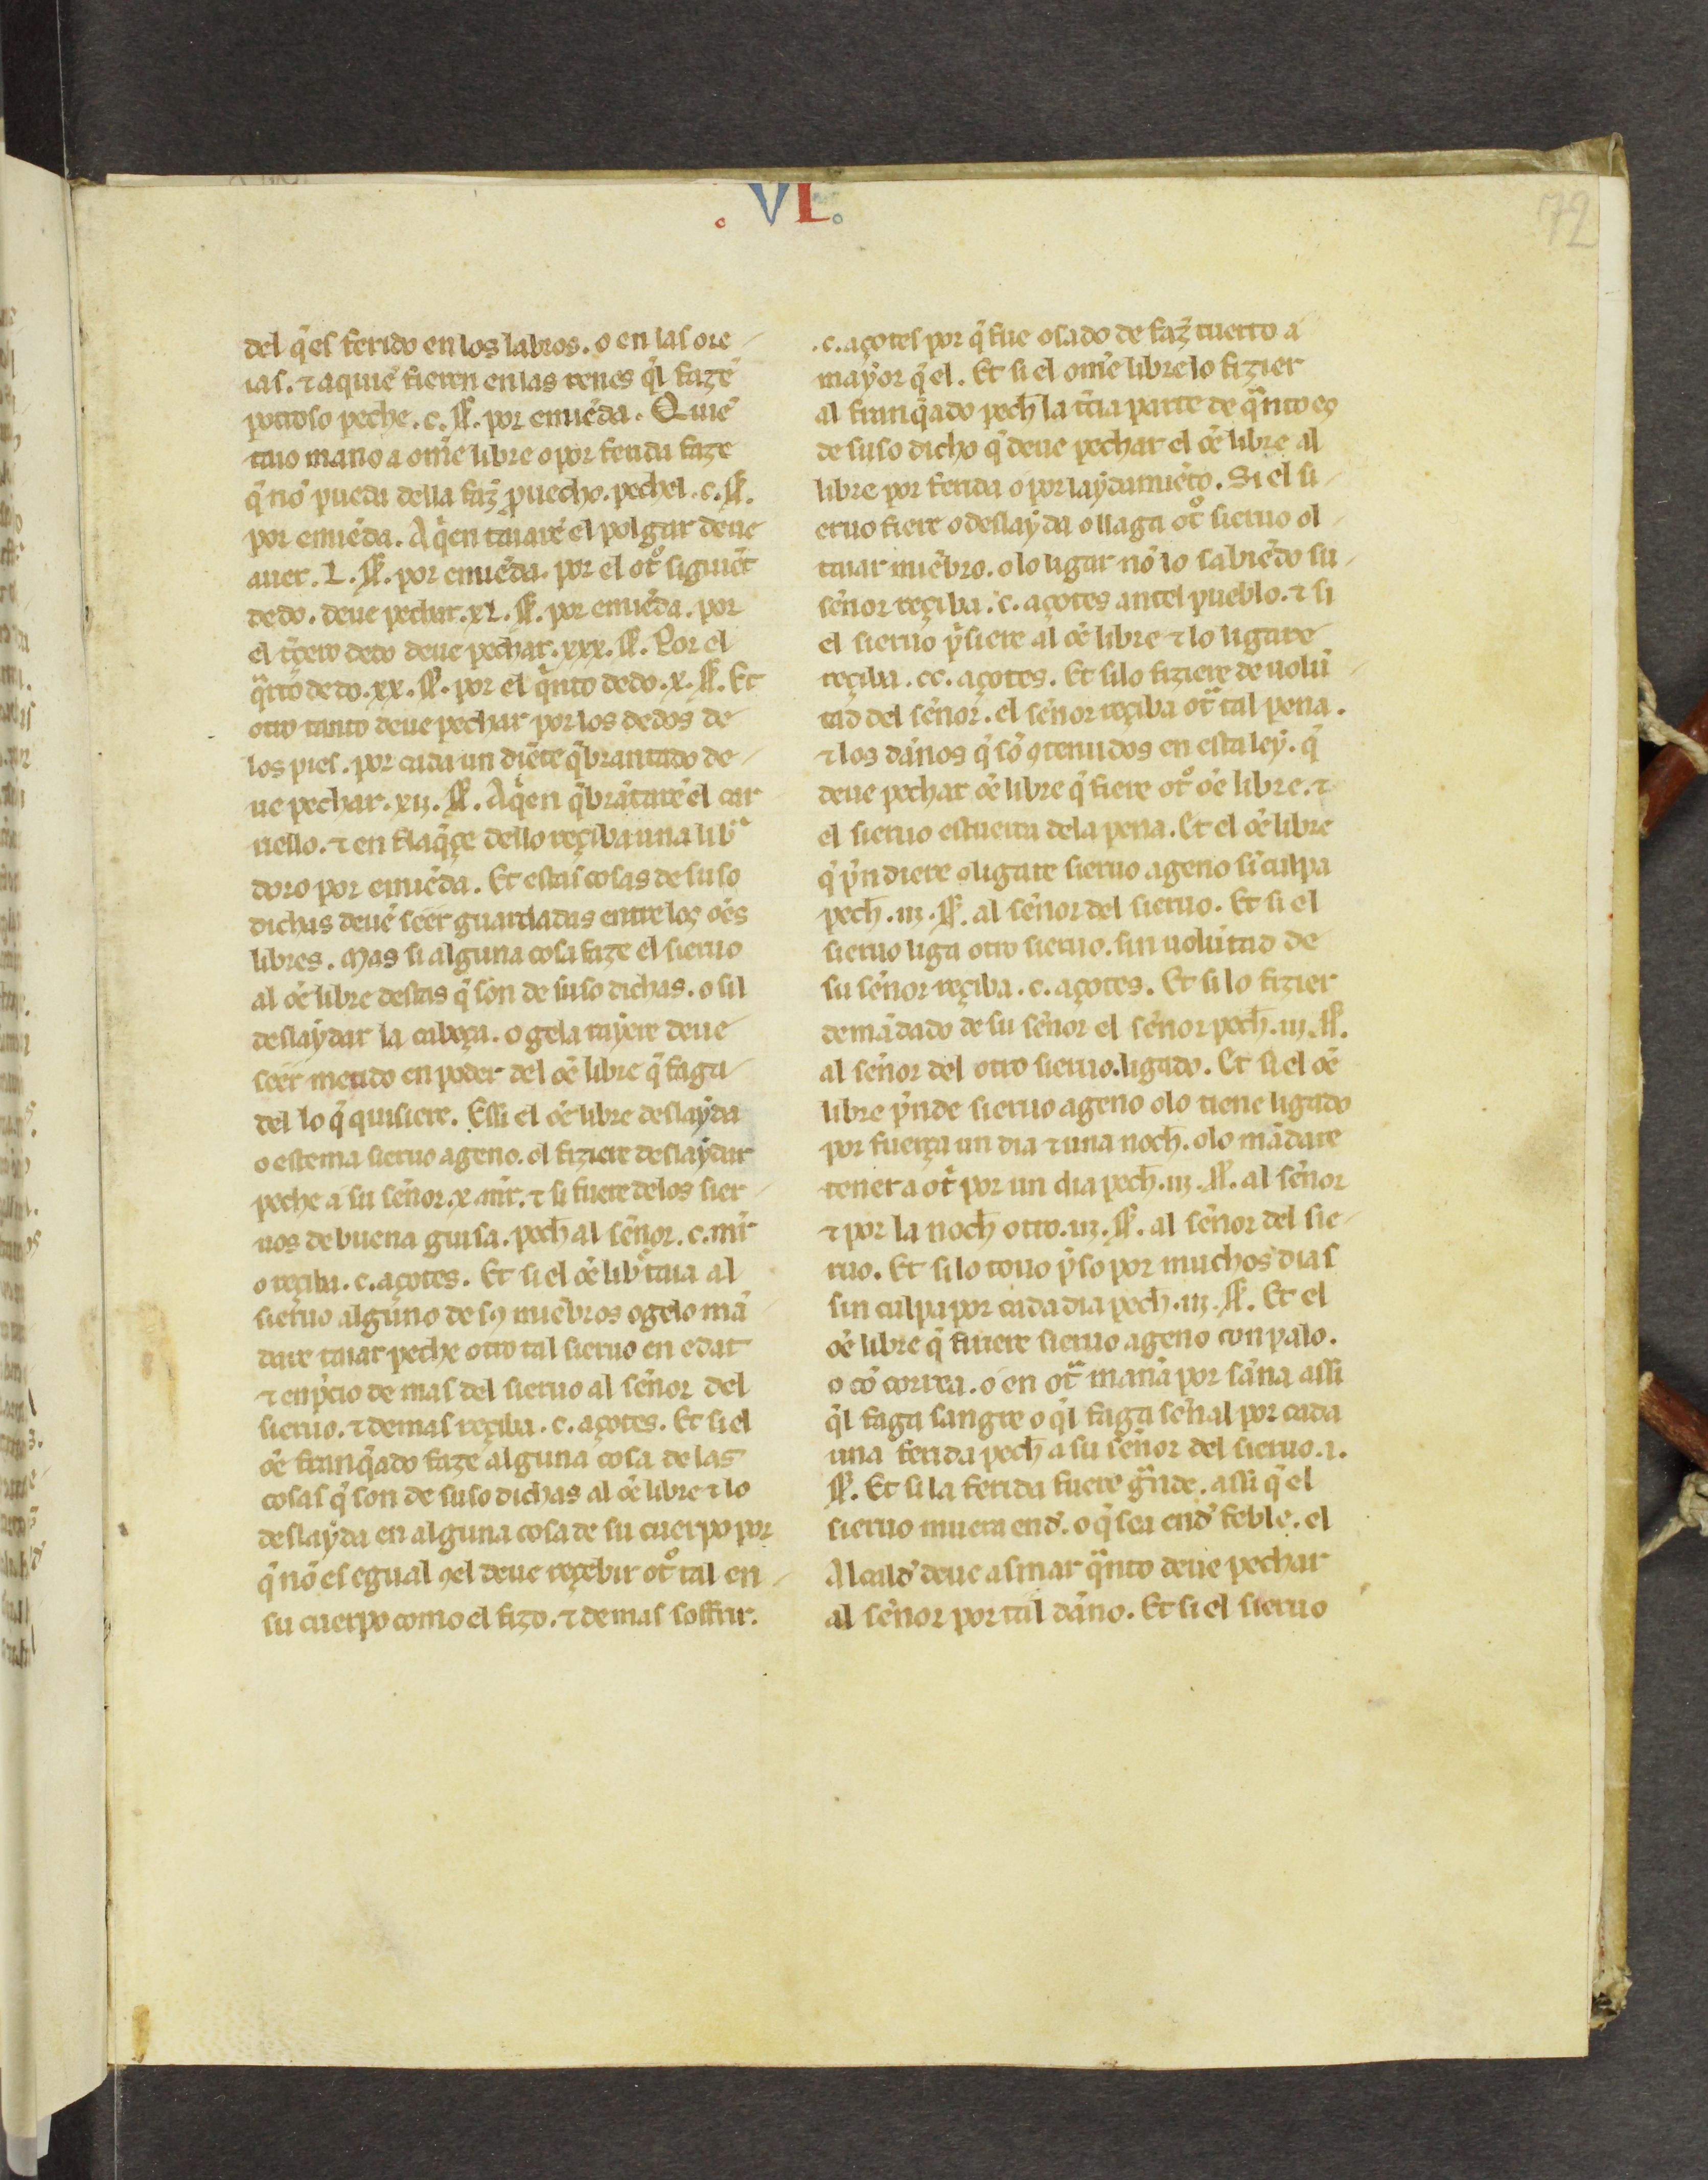 .VI.
72
del q̃ es ferido en los labros. o en las ore
ias. ⁊ a quiẽ fieren en las renes q̃l fazẽ
potroso peche. c. ss. por emiẽda. Quiẽ
taio mano a om̃e libre o por ferida faze
q̃ nõ pueda della faz̃ prouecho. pechel. c. ss.
por emiẽda. A q̃en taiarẽ el polgar deue
auer. L. ss. por emiẽda. por el ot͛º siguiẽt
dedo. deue pechar. xL. ss. por emiẽda. por
el t͛çero dedo deue pechar. xxx. ss. Por el
q̃rto dedo. xx. ss. por el q̃nto dedo. x. ss. Et
otro tanto deue pechar por los dedos de
los pies. por cada un diẽte q̃brantado de
ue pechar. xij. ss. A q̃en q̃brãtarẽ el car
uiello. ⁊ en flaq̃çe dello reçiba una libª
doro por emiẽda. Et estas cosas de suso
dichas deuẽ seer guardadas entre los oẽs
libres. Mas si alguna cosa faze el sieruo
al oẽ libre destas q̃ son de suso dichas. o sil
deslaydar la cabeça. o gela rayere deue
seer metido en poder del oẽ libre q̃ faga
del lo q̃ quisiere. Essi el oẽ libre deslayda
o estema sieruo ageno. ol fiziere deslaydar
peche a su señor. x mr̃. ⁊ si fuere delos sier
uos de buena guisa. pech̃ al señor. c. mr̃
o reçiba. c. açotes. Et si el oẽ lib͛ taia al
sieruo alguno de sꝯ miẽbros o gelo mã
dare taiar peche otro tal sieruo en edat
⁊ en p͛cio de mas del sieruo al señor del
sieruo. ⁊ demas reçiba. c. açotes. Et si el
oẽ franq̃ado faze alguna cosa de las
cosas q̃ son de suso dichas al oẽ libre ⁊ lo
deslayda en alguna cosa de su cuerpo por
q̃ nõ es egual ꝯel deue reçebir ot͛º tal en
su cuerpo como el fizo. ⁊ demas soffrir.
.c. açotes por q̃ fue osado de faz̃ tuerto a
mayor q̃ el. Et si el om̃e libre lo fizier
al franq̃ado pech̃ la t͛cia parte de q̃nto es
de suso dicho q̃ deue pechar el oẽ libre al
libre por ferida o por laydamiẽto. Si el si
eruo fiere o deslayda o llaga ot͛º sieruo ol
taiar miẽbro. o lo ligar nõ lo sabiẽdo su
señor reçiba. c. açotes antel pueblo. ⁊ si
el sieruo p͛siere al oẽ libre ⁊ lo ligare
reçiba. cc. açotes. Et si lo fiziere de uolũ
tad del señor. el señor reçiba ot͛ª tal pena.
⁊ los dãnos q̃ sõ ꝯtenudos en esta ley. q̃
deue pechar oẽ libre q̃ fiere ot͛º oẽ libre. ⁊
el sieruo estuerta dela pena. Et el oẽ libre
q̃ p͛ndiere o ligare sieruo ageno sĩ culpa
pech̃. iij. ss. al señor del sieruo. Et si el
sieruo liga otro sieruo. sin uolũtad de
su señor reçiba. c. açotes. Et si lo fizier
demãdado de su señor el señor pech̃. iij. ss.
al señor del otro sieruo. ligado. Et si el oẽ
libre p͛nde sieruo ageno o lo tiene ligado
por fuerça un dia ⁊ una noch̃. olo mãdare
tener a ot͛º por un dia pech̃. iij. ss. al señor
⁊ por la noch̃ otro. iij. ss. al señor del sie
ruo. Et si lo touo p͛so por muchos dias
sin culpa por cada dia pech̃. iij. ss. Et el
oẽ libre q̃ firiere sieruo ageno con palo.
o cõ correa. o en ot͛ª manã por saña assi
q̃l faga sangre o q̃l faga señal por cada
una ferida pech̃ a su señor del sieruo. i.
ss. Et si la ferida fuere gñde. assi q̃ el
sieruo muera end̃. o q̃ sea end̃ feble. el
Alcald̃ deue asmar q̃nto deue pechar
al señor por tal dãno. Et si el sieruo